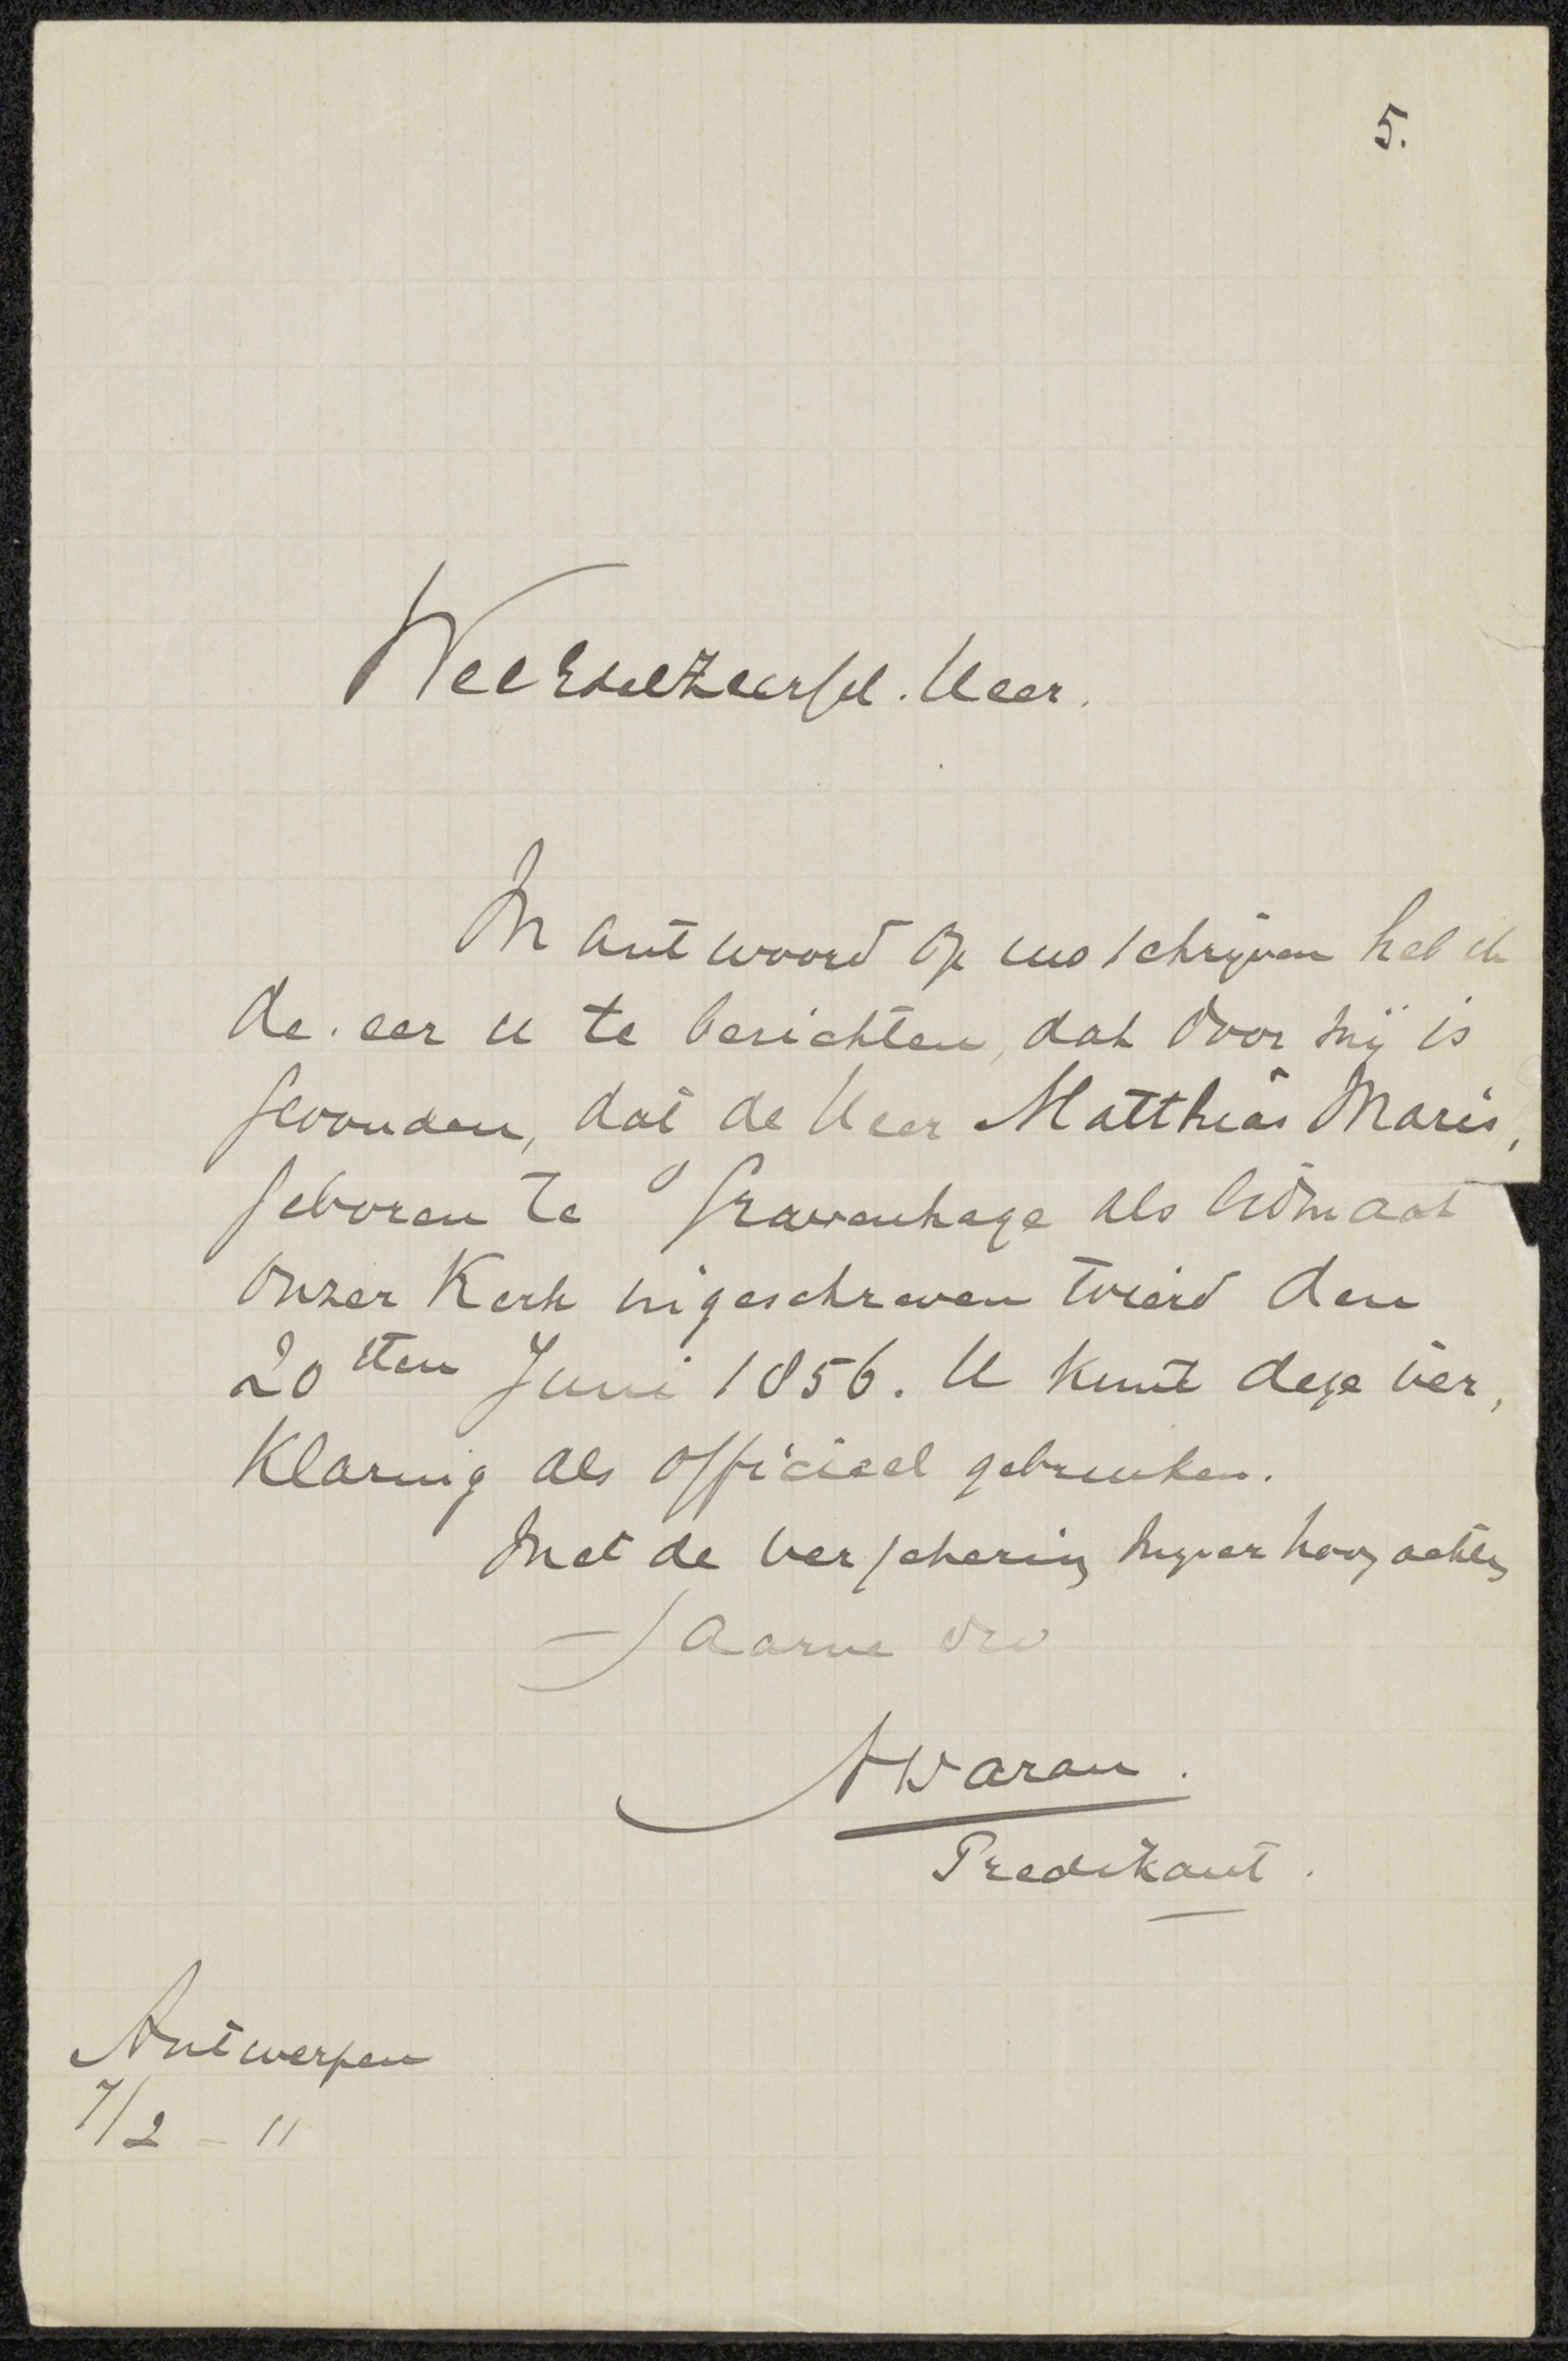 5.
WelEdelZeergel. Heer.
In antwoord op uw schrijven heb ik
de eer u te berichten, dat door mij is
gevonden, dat de Heer Matthias Maris,
geboren te 's Gravenhage als lidmaat
onzer Kerk ingeschreven wierd den
20sten Juni 1856. U kunt deze ver„
klaring als officieel gebruiken.
Met de verzekering mijner hoogachting
Gaarne
Predikant.
Antwerpen
7/2 - 11